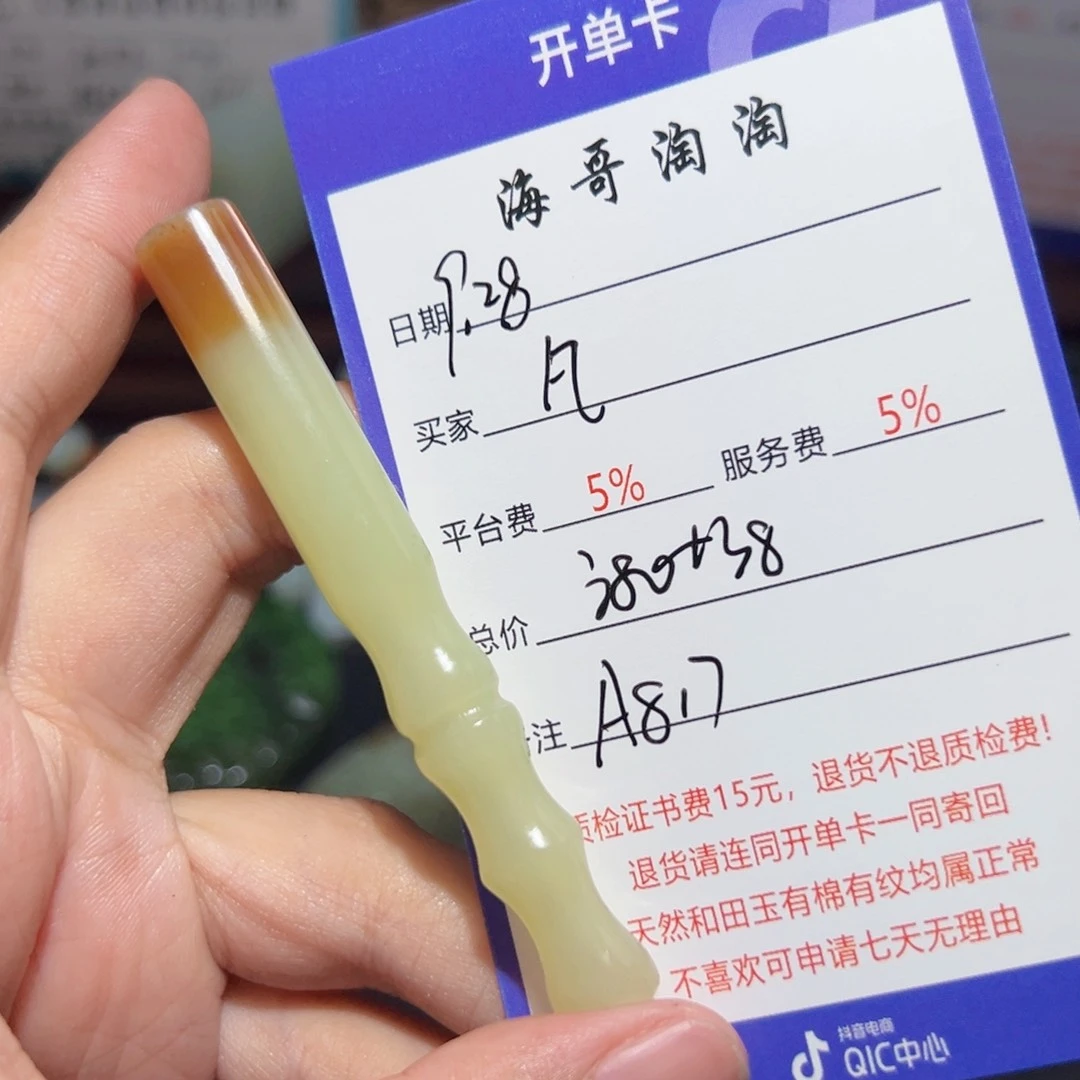 开单卡
海哥淘淘
日期 9.28
买家 凡
平台费 5% 服务费 5%
总价 380+38
注 A817
质检证书费15元，退货不退质检费！
退货请连同开单卡一同寄回
天然和田玉有棉有纹均属正常
不喜欢可申请七天无理由
抖音电商
QIC中心